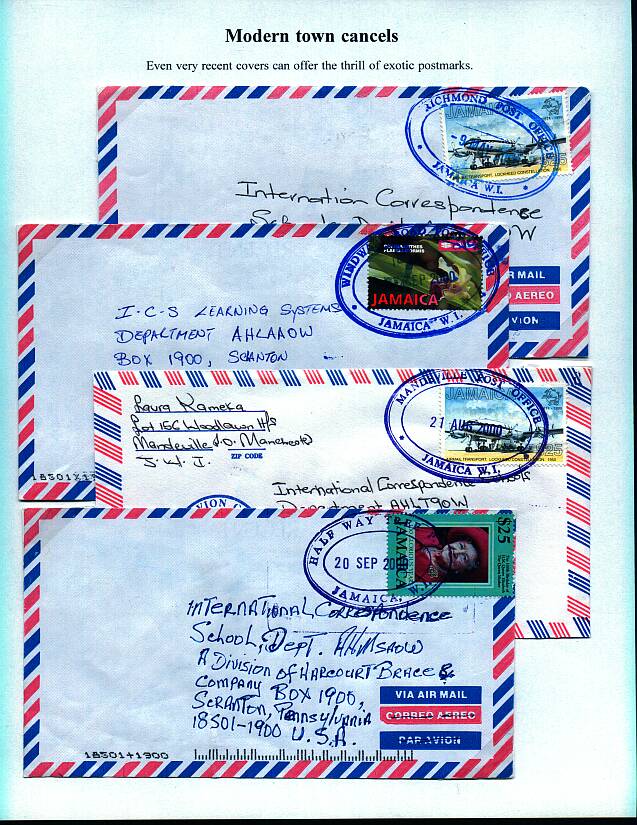 Modern town cancels
Even very recent covers can offer the thrill of exotic postmarks.
RICHMOND POST OFFICE
JAMAICA W.I.
JAMAICA
TRANSPORT, LOCKHEED CONSTELLATION,
$25
Internation Correspondence
AIR MAIL
CORREO AEREO
PAR AVION
WINDWARD ROAD POST OFFICE
2000
JAMAICA W.I.
JAMAICA
I.C-S LEARNING SYSTEMS
DEPARTMENT AHLAAOW
BOX 1900, SCANTON
18501
MANDEVILLE POST OFFICE
21 AUG 2000
JAMAICA W.I.
JAMAICA
AIRMAIL TRANSPORT, LOCKHEED CONSTELLATION, 1950
$25
Laura Kameka
Lot 156 Woodlawn H/S
Mandeville P.O. Manchester
J.W.I.
ZIP CODE
International Correspondence Schools
Department AHLT90W
HALF WAY TREE
20 SEP 2000
JAMAICA, W.I.
JAMAICA
$25
INTERNATIONAL Correspondence
School, Dept. AHMSAOW
A Division of HARCOURT BRACE &
COMPANY BOX 1900,
SCRANTON, Pennsylvania
18501-1900 U.S.A.
VIA AIR MAIL
CORREO AEREO
PAR AVION
18501+1900